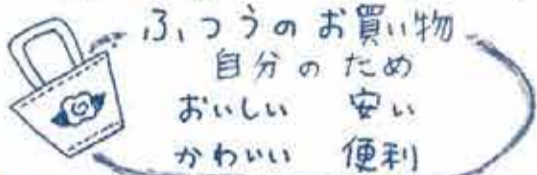 ふつうのお買い物
自分のため
おいしい 安い
かわいい 便利